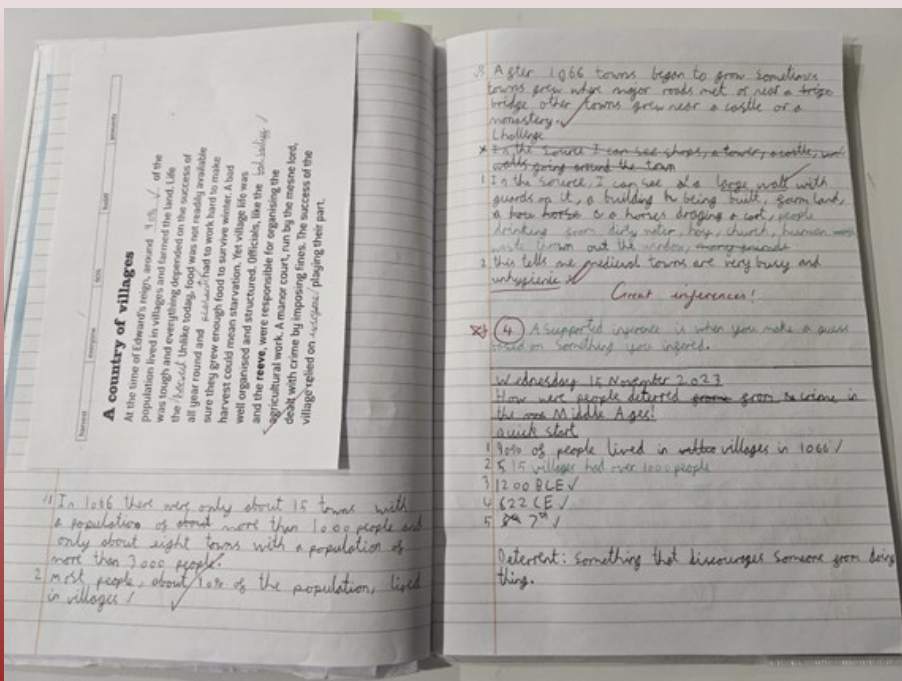 harvest everyone 90% bailiff peasants
A country of villages
At the time of Edward's reign, around 90% of the
population lived in villages and farmed the land. Life
was tough and everything depended on the success of
the harvest. Unlike today, food was not readily available
all year round and peasants had to work hard to make
sure they grew enough food to survive winter. A bad
harvest could mean starvation. Yet village life was
well organised and structured. Officials, like the bailiff
and the reeve, were responsible for organising the
agricultural work. A manor court, run by the mesne lord,
dealt with crime by imposing fines. The success of the
village relied on everyone playing their part.
1 In 1066 there were only about 15 towns with
a population of about more than 1000 people and
only about eight towns with a population of
more than 3000 people.
2 Most people, about 90% of the population, lived
in villages
3 After 1066 towns began to grow sometimes
towns grew where major roads met or near a
bridge other towns grew near a castle or a
monastery.
Challenge
In the source I can see shops, a tower, a castle,
walls going around the town
1 In the source, I can see a large wall with
guards on it, a building being built, farm land,
a horses draging a cart, people
drinking from dirty water, church, human
waste thrown out the window,
2 this tells me medieval towns are very busy and
unhygienic
Great inferences!
4 A supported inference is when you make a guess
based on something you infered.
Wednesday 15 November 2023
How were people deterred from crime in
the Middle Ages?
Quick start
1 90% of people lived in villages in 1066
2 15 villages had over 1000 people
3 1200 BCE
4 622 CE
5 7th
Deterrent: Something that discourages someone from doing
thing.